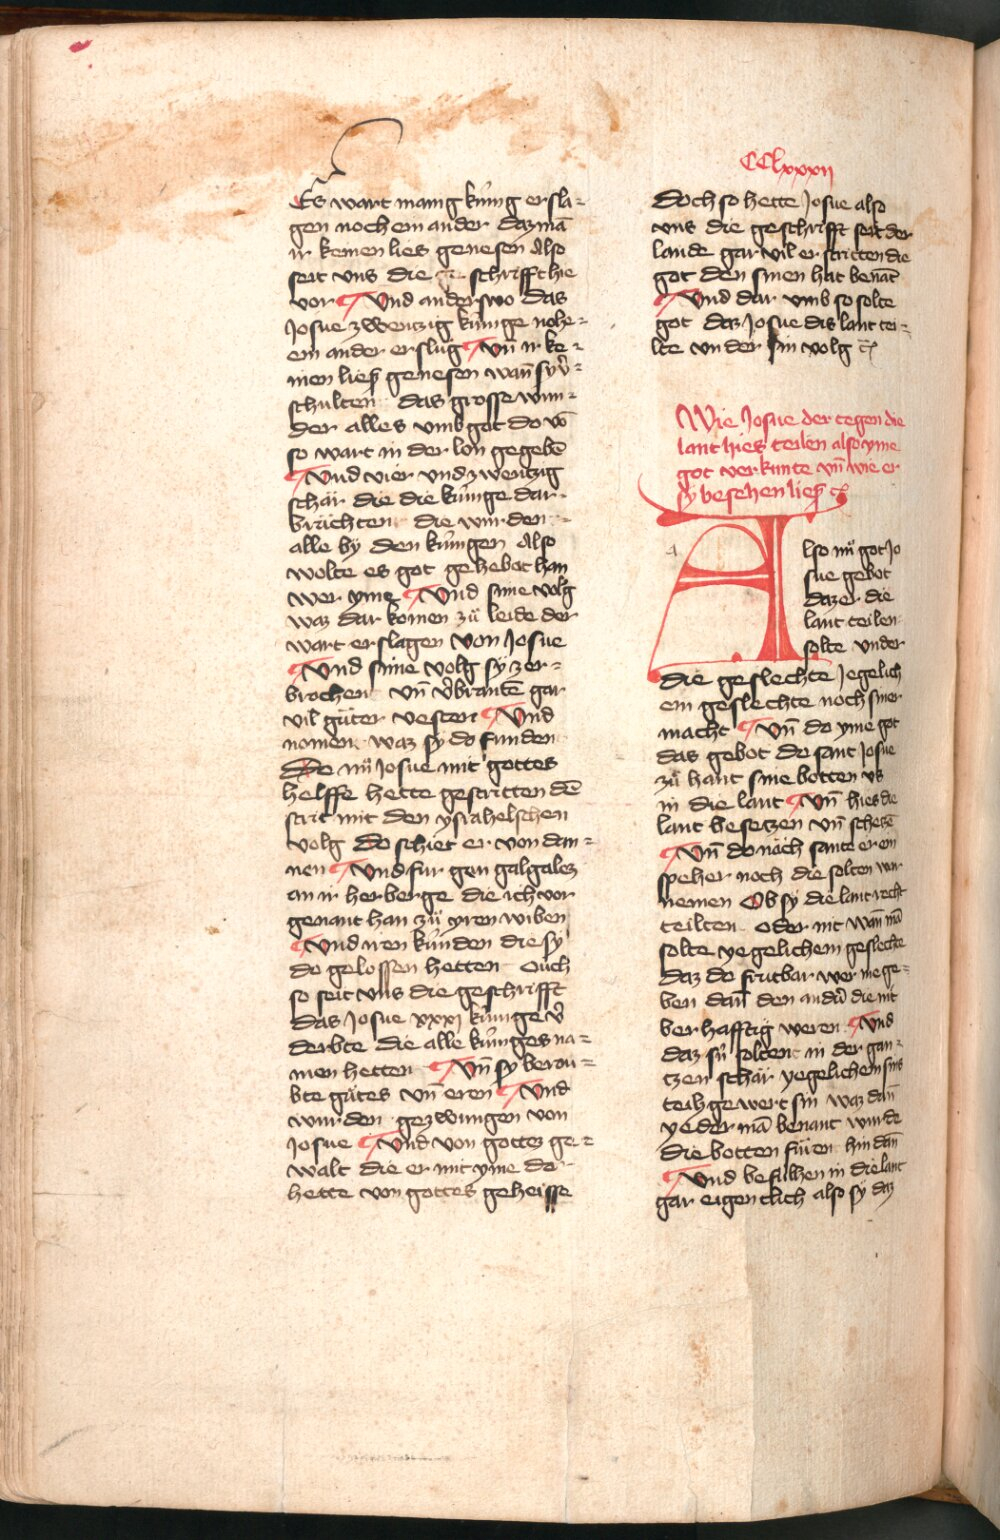 Es wart manig kúnig ersla=
gen noch ein ander daz mā
ir keinen lies genesen Also
seit vns die ge schrifft hie
vor ¶ Vnd anderswo das
Josue zwentzig kúnige nohe=
ein ander erslůg ¶ Vn̄ ir ke=
inen liesz genesen wan̄ sy v̾=
schulten das grosse wun=
der alles vmb got do vō
so wart in der lon gegebē
¶ Vnd vier vnd zwentzig
schar die die kúnige dar
brachten die wurden
alle by den kúnigen Also
wolte es got gehebet han
wer yme ¶ Vnd sine volg
waz dar komen zů leide der
wart erslagen von Josue
¶ Vnd sime volg sy zer=
brochen vn̄ v̾brantē gar
vil gůter vesten ¶ Vnd
nomen waz sy do funden
Do nů Josue mit gottes
helffe hette gestritten dē
strit mit den ysrahelschen
volg do schiet er von dan=
nen ¶ Vnd fur gen galgalez
an ir herberge die ich vor
genant han zů yren wiben
¶ Vnd iren kinden die sy
do gelossen hetten Ouch
so seit vns die geschrifft
das Josue xxxj kúnige v̾
derbte die alle kúniges na=
men hetten ¶ Vn̄ sy berou=
bte gůtes vn̄ eren ¶ Vnd
wurden gezwungen von
Josue ¶ Vnd von gottez ge=
walt die er mit yme do
hette von gottes geheisse
CClxxxij
Doch so hette Josue also
vns die geschrifft seit der
lande gar vil erstritten die
got den sinen hat benāt
¶ Vnd dar vmb so solte
got daz Josue dis lant tei=
lte vnder sin volg
Wie Josue der tegen die
lant hies teilen also yme
got verkunte vn̄ wie er
sy besehen liesz
Also nů got Jo
sue gebot
daz er die
lant teilen
solte vnder
die geslechte Jegelich
ein geslechte noch siner
macht ¶ Vn̄ do yme got
das gebot do sant Josue
zů hant sine botten vs
in die lant ¶ Vn̄ hies die
lant besetzen vn̄ schetzē
¶ Vn̄ do noch sante er ein
speher noch die solten war
nemen Ob sy die lant recht
teilten Oder nit wan̄ mā
solte yegelichem geslechte
daz do frutbar wer me ge=
ben dan̄ den andn̄ die nit
berhafftig weren ¶ Vnd
daz sú soltent in der gan=
tzen schar yegelichem sins
teils gewert sin waz dan̄
yederman benant wurde
die botten fůren hin dan̄
¶ Vnd befulhen in die lant
gar eigentlich also sy daz